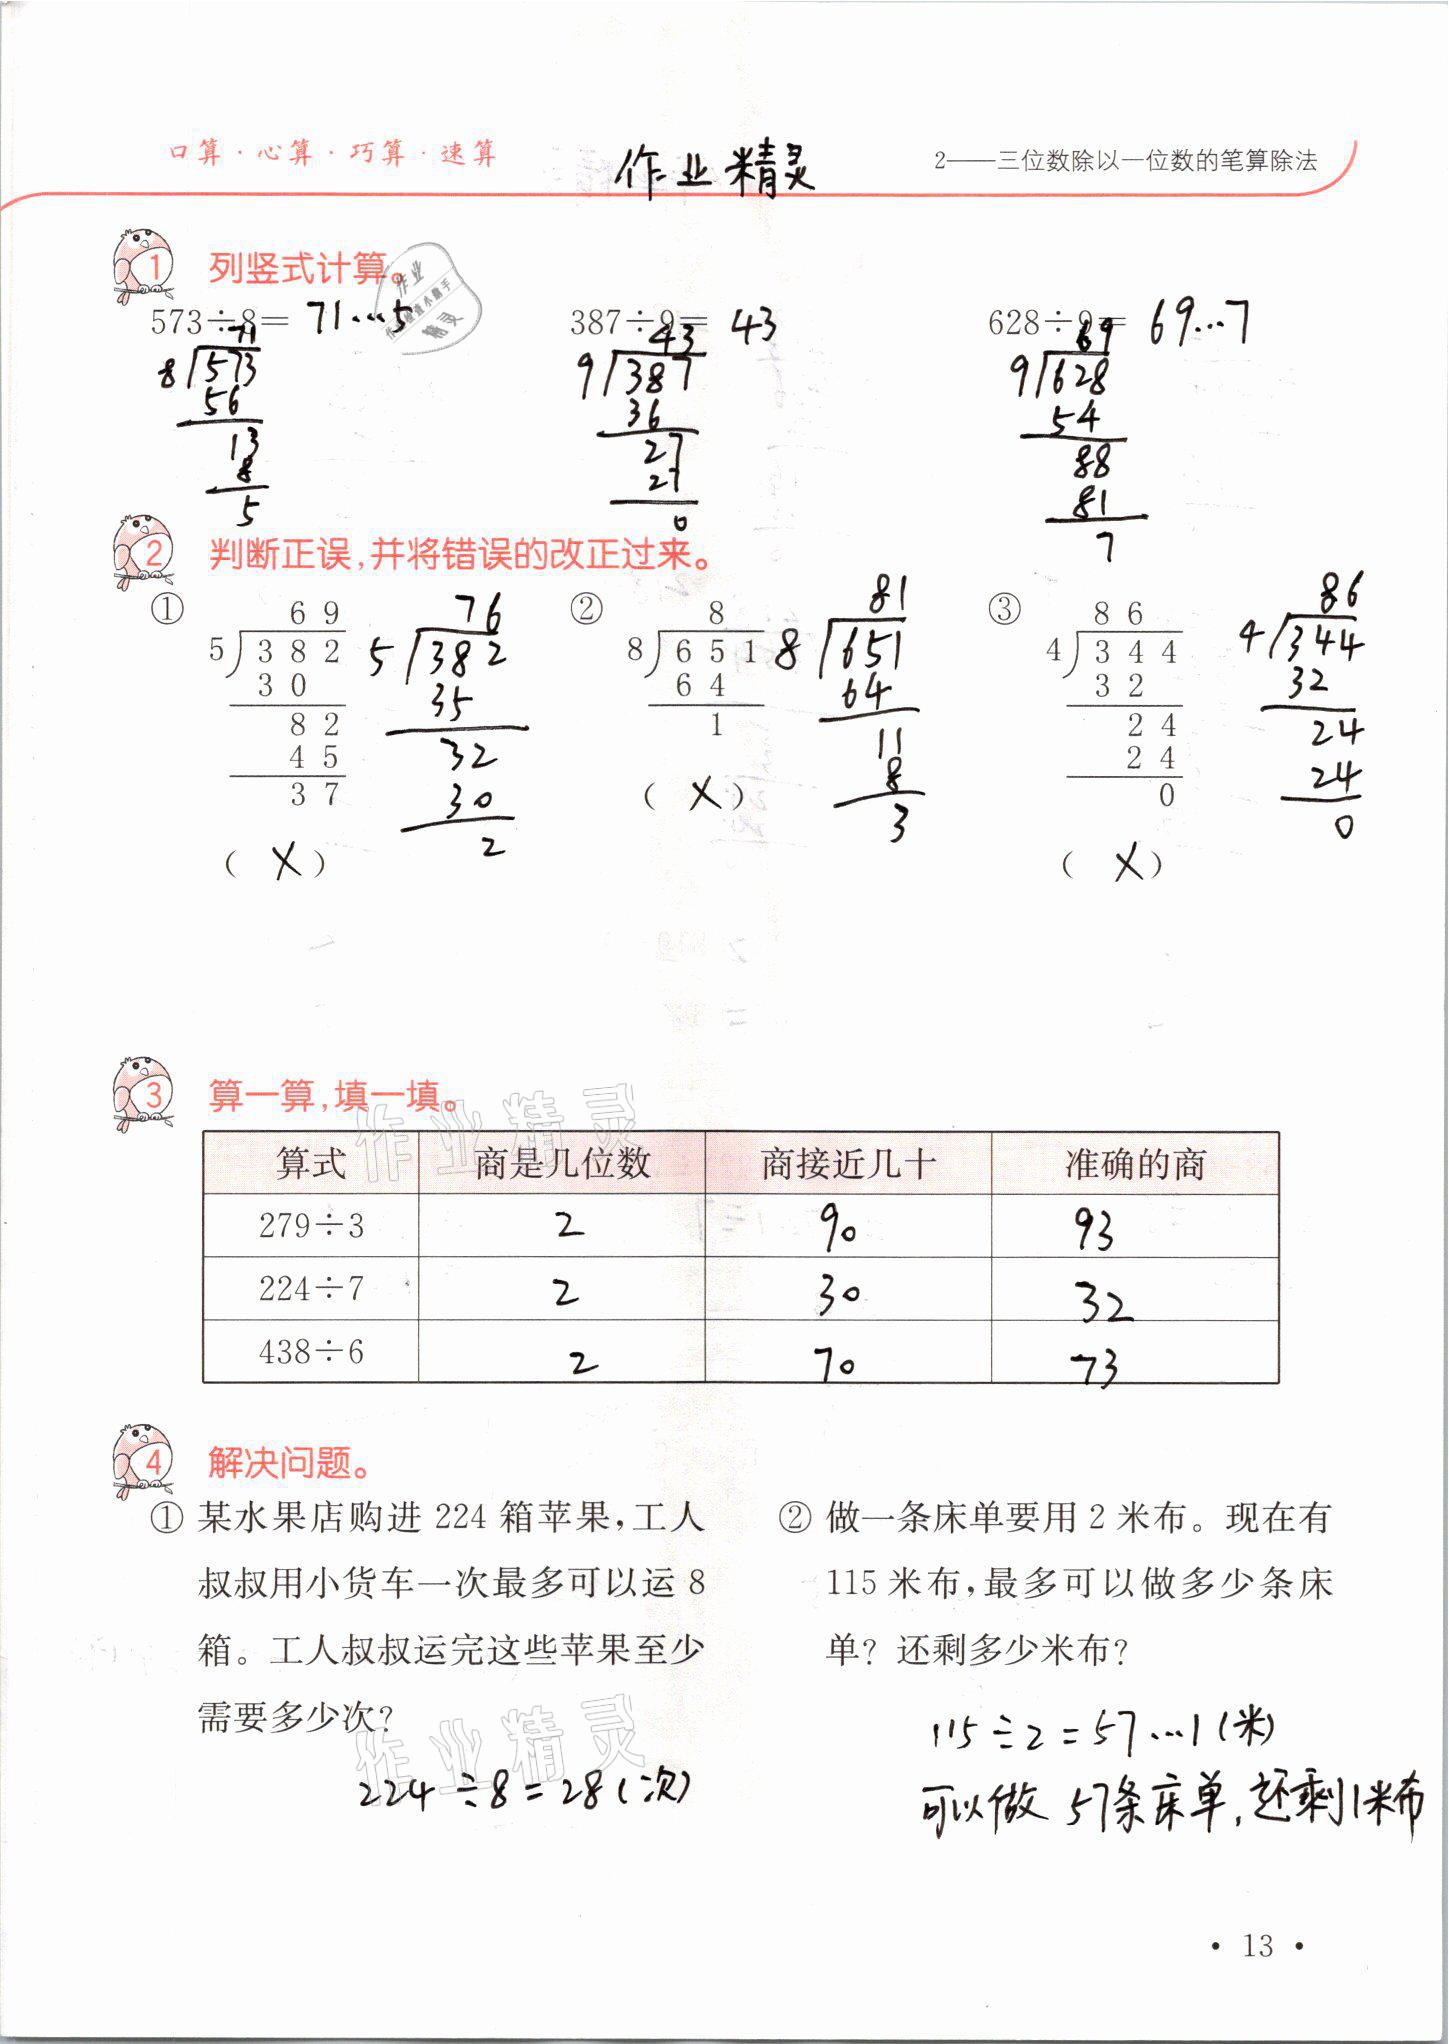 口算·心算·巧算·速算
作业精灵
2——三位数除以一位数的笔算除法
1 列竖式计算。
573÷8= 71…5
387÷9= 43
628÷9= 69…7
71
8 573
56
13
8
5
43
9 387
36
27
27
0
69
9 628
54
88
81
7
2 判断正误,并将错误的改正过来。
①
6 9
5 3 8 2
3 0
8 2
4 5
3 7
( X )
76
5 382
35
32
30
2
②
8
8 6 5 1
6 4
1
( X )
81
8 651
64
11
8
3
③
8 6
4 3 4 4
3 2
2 4
2 4
0
( X )
86
4 344
32
24
24
0
3 算一算,填一填。
算式 商是几位数 商接近几十 准确的商
279÷3 2 90 93
224÷7 2 30 32
438÷6 2 70 73
4 解决问题。
① 某水果店购进 224 箱苹果,工人
叔叔用小货车一次最多可以运 8
箱。工人叔叔运完这些苹果至少
需要多少次?
224÷8=28(次)
② 做一条床单要用 2 米布。现在有
115 米布,最多可以做多少条床
单? 还剩多少米布?
115÷2=57…1(米)
可以做 57条床单,还剩1米布
作业精灵
作业精灵
· 13 ·